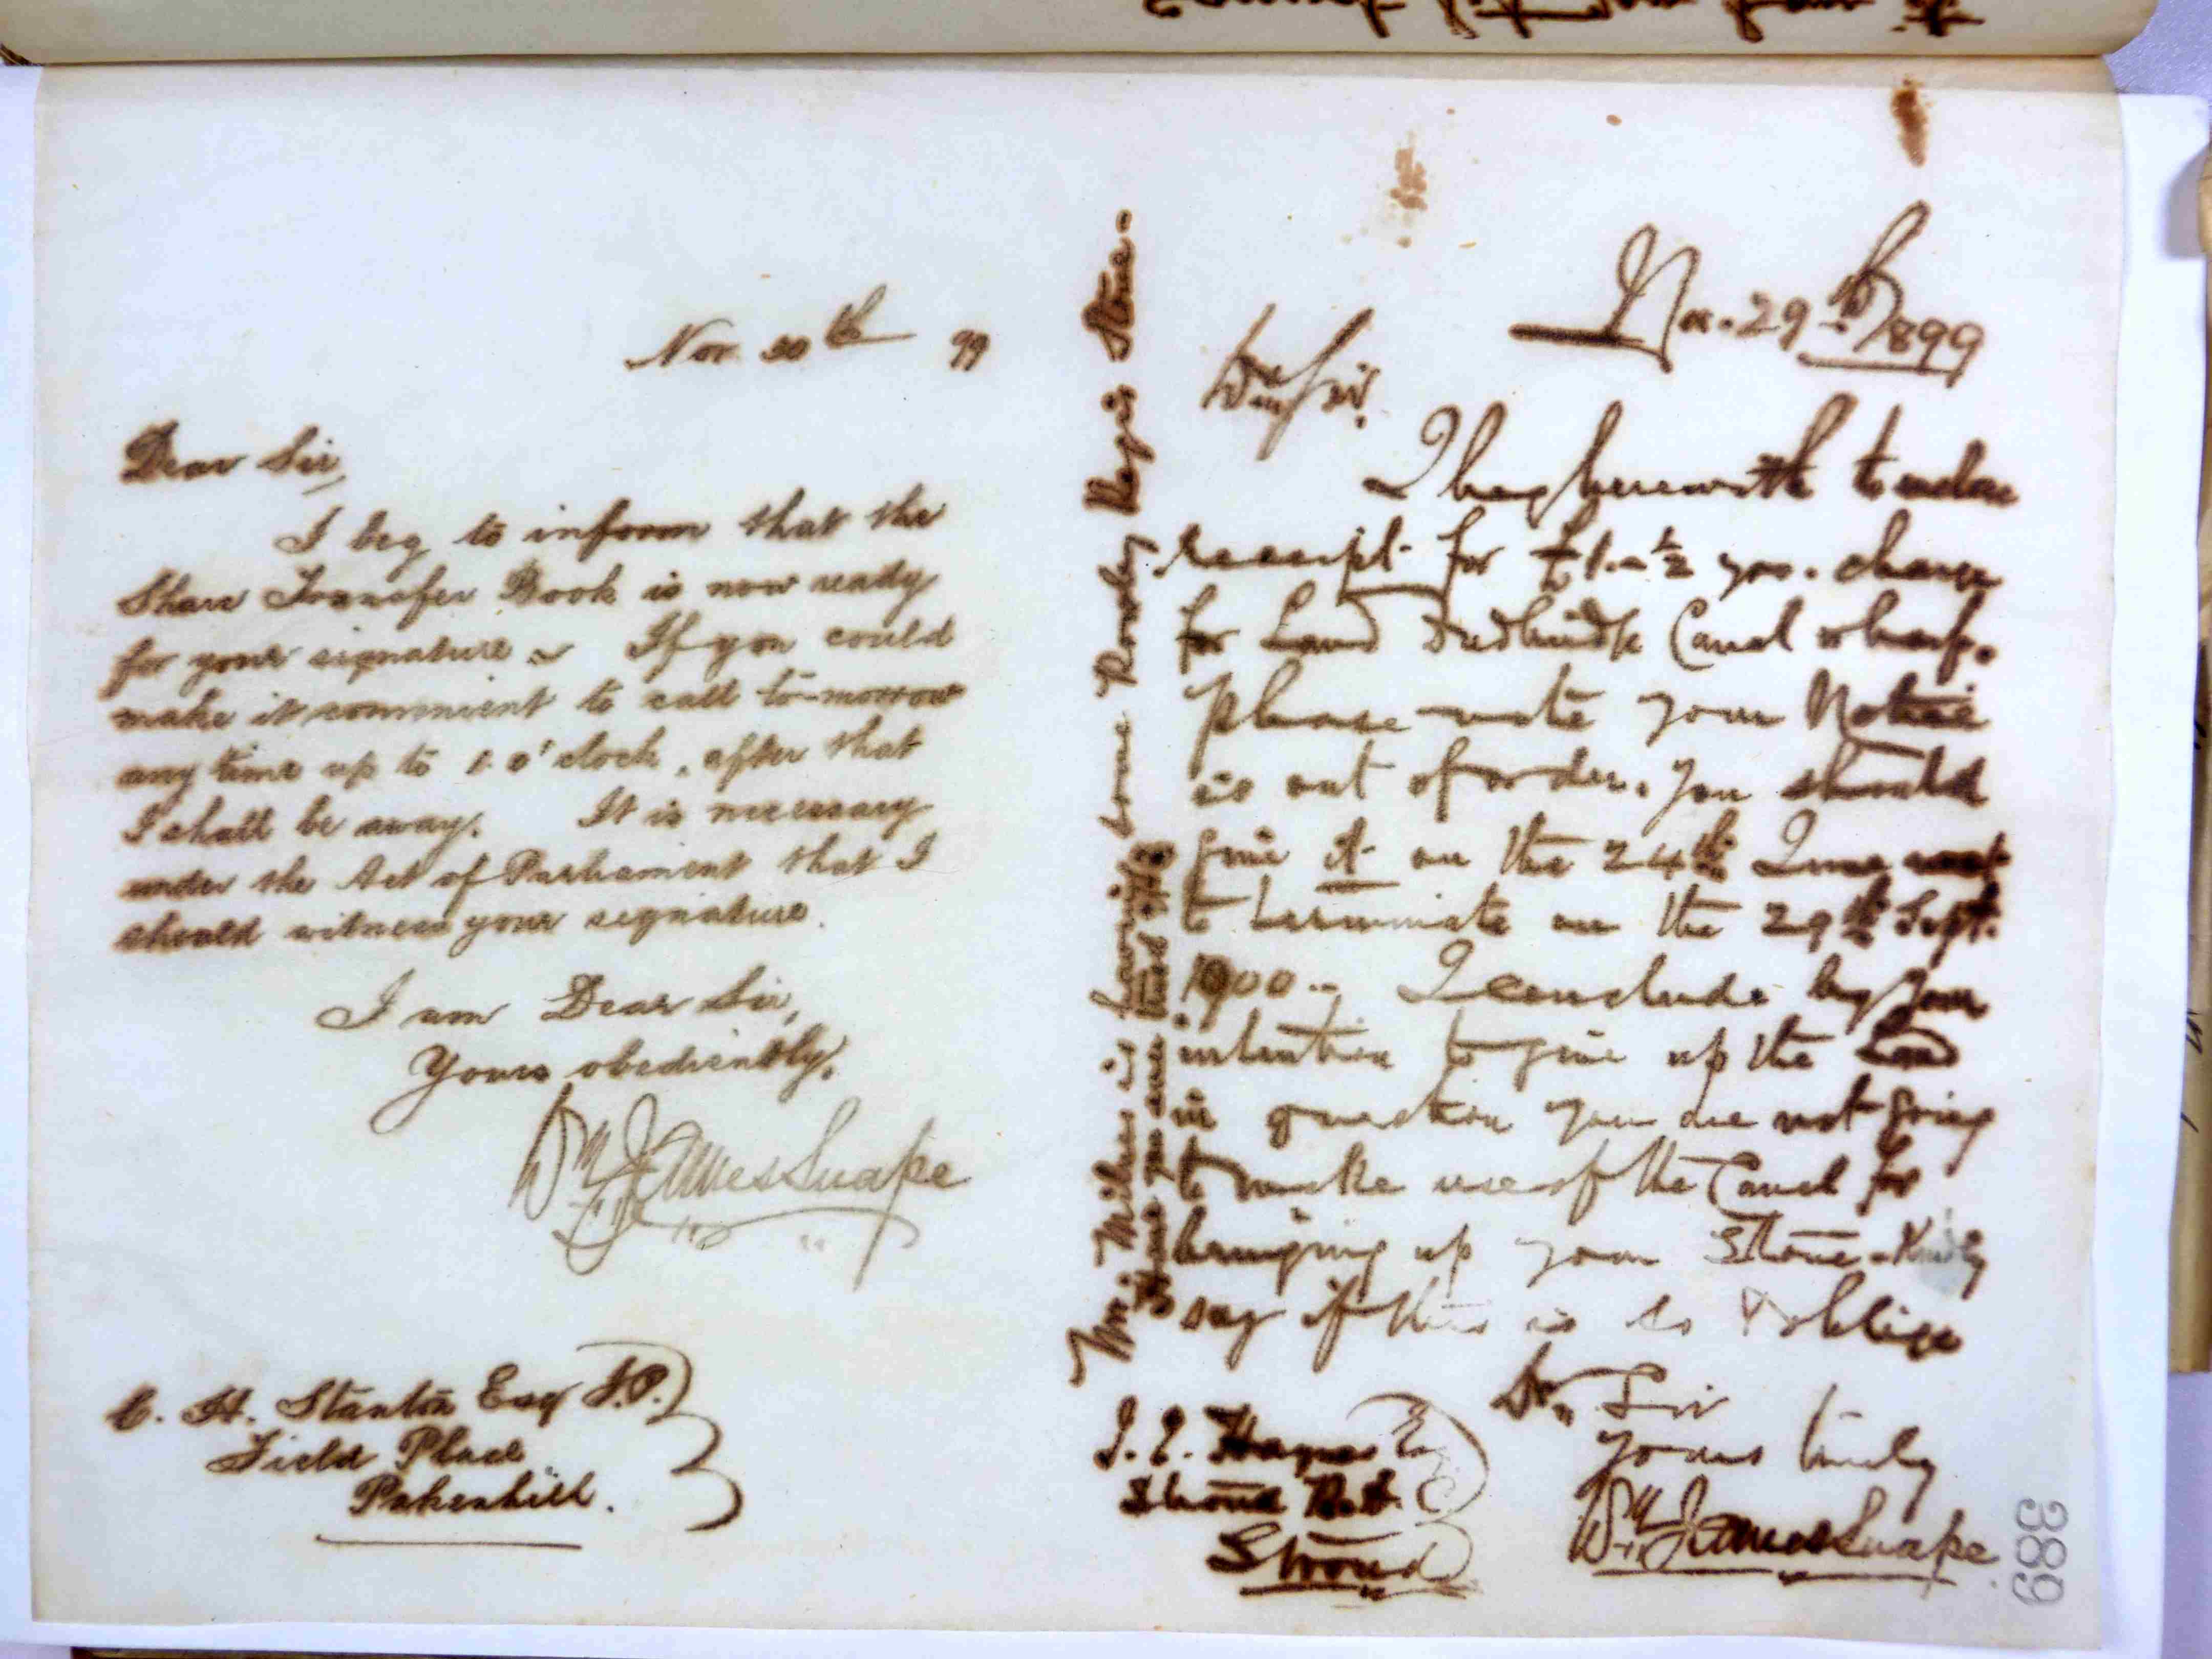 Nov. 30th 99
Dear Sir,
I beg to inform that the
Share Transfer Book is now ready
for your signature. If you could
make it convenient to call to-morrow
any time up to 1 o'clock, after that
I shall be away. It is necessary
under the Act of Parliament that I
should witness your signature.
I am Dear Sir,
Yours obediently,
Wm James Snape
C. H. Stanton Esq J.P.
Field Place
Pakenhill.
Nov. 29th 1899
Dear Sir,
I beg herewith to enclose
receipt for £1 - ½ yrs. charge
for Land Dudbridge Canal wharf.
Please note your Notice
is out of order. You should
give it on the 24th June next
to terminate on the 29th Sept.
1900.. I conclude by your
intention to give up the Land
in question you are not going
to make use of the Canal for
bringing up your Stone - Kindly
say if this is so & oblige
Dr Sir
Yours truly
Wm James Snape
J. E. Hayes Esq
Stroud R.D.C.
Stroud
Mr. Miles is having some Rowley Regis Stone -
389